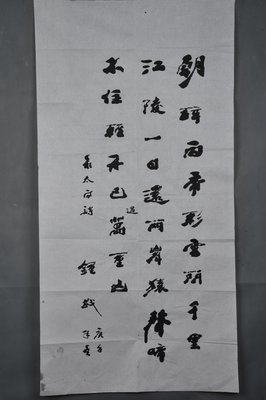 朝辭白帝彩雲間千里
江陵一日還兩岸猿聲啼
不住輕舟已過萬重山
录太白詩